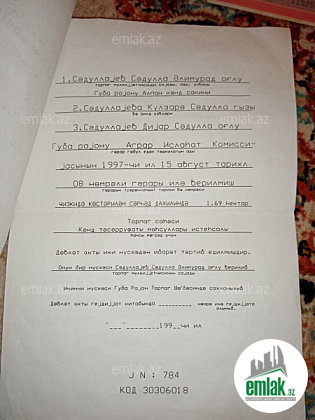 emlak.az
1.Сәдуллајев Сәдулла Әлимурад оғлу
торпаг мүлкијјәтчисинин сојады, ады, үнваны
Губа рајону Алпан кәнд сакини
2.Сәдуллајева Күлзарә Сәдулла гызы
вә аилә үзвләри
3.Сәдуллајев Дијар Сәдулла оғлу
Губа рајону Аграр Ислаһат Комисси-
гәрар гәбул едән тәшкилатын ады
јасынын 1997-чи ил 15 август тарихл
08 нөмрәли гәрары илә верилмиш
гәрарын (сәрәнҹамын) тарихи вә нөмрәси
чизкидә көстәрилән сәрһәд дахилиндә 1.69 һектар
Торпаг саһәси
Кәнд тәсәррүфаты мәһсуллары истеһсалы
һансы мәгсәд үчүн
Дөвләт акты ики нүсхәдән ибарәт тәртиб едилмишдир.
Онун бир нүсхәси Сәдуллајев Сәдулла Әлимурад оғлу верилиб
торпаг мүлкијјәтчисинин сојады
Икинҹи нүсхәси Губа Рајон Торпаг Шө'бәсиндә сахланылыб
Дөвләт акты гејдијјат китабында __________ нөмрә илә гејдијјата
алыныб.
"___"________199__чи ил
J N : 784
КОД 30306018
emlak.az